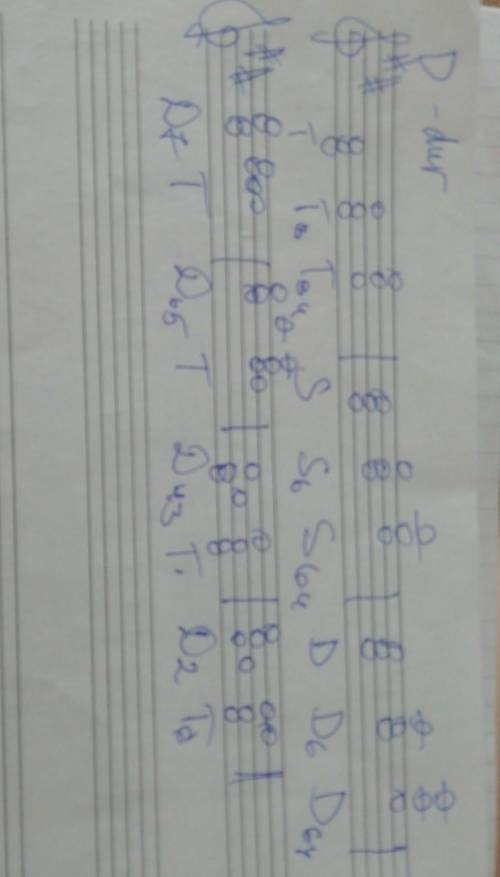 D-dur
T T6 T64 S S6 S64 D D6 D64
D7 T D65 T D43 T D2 T6